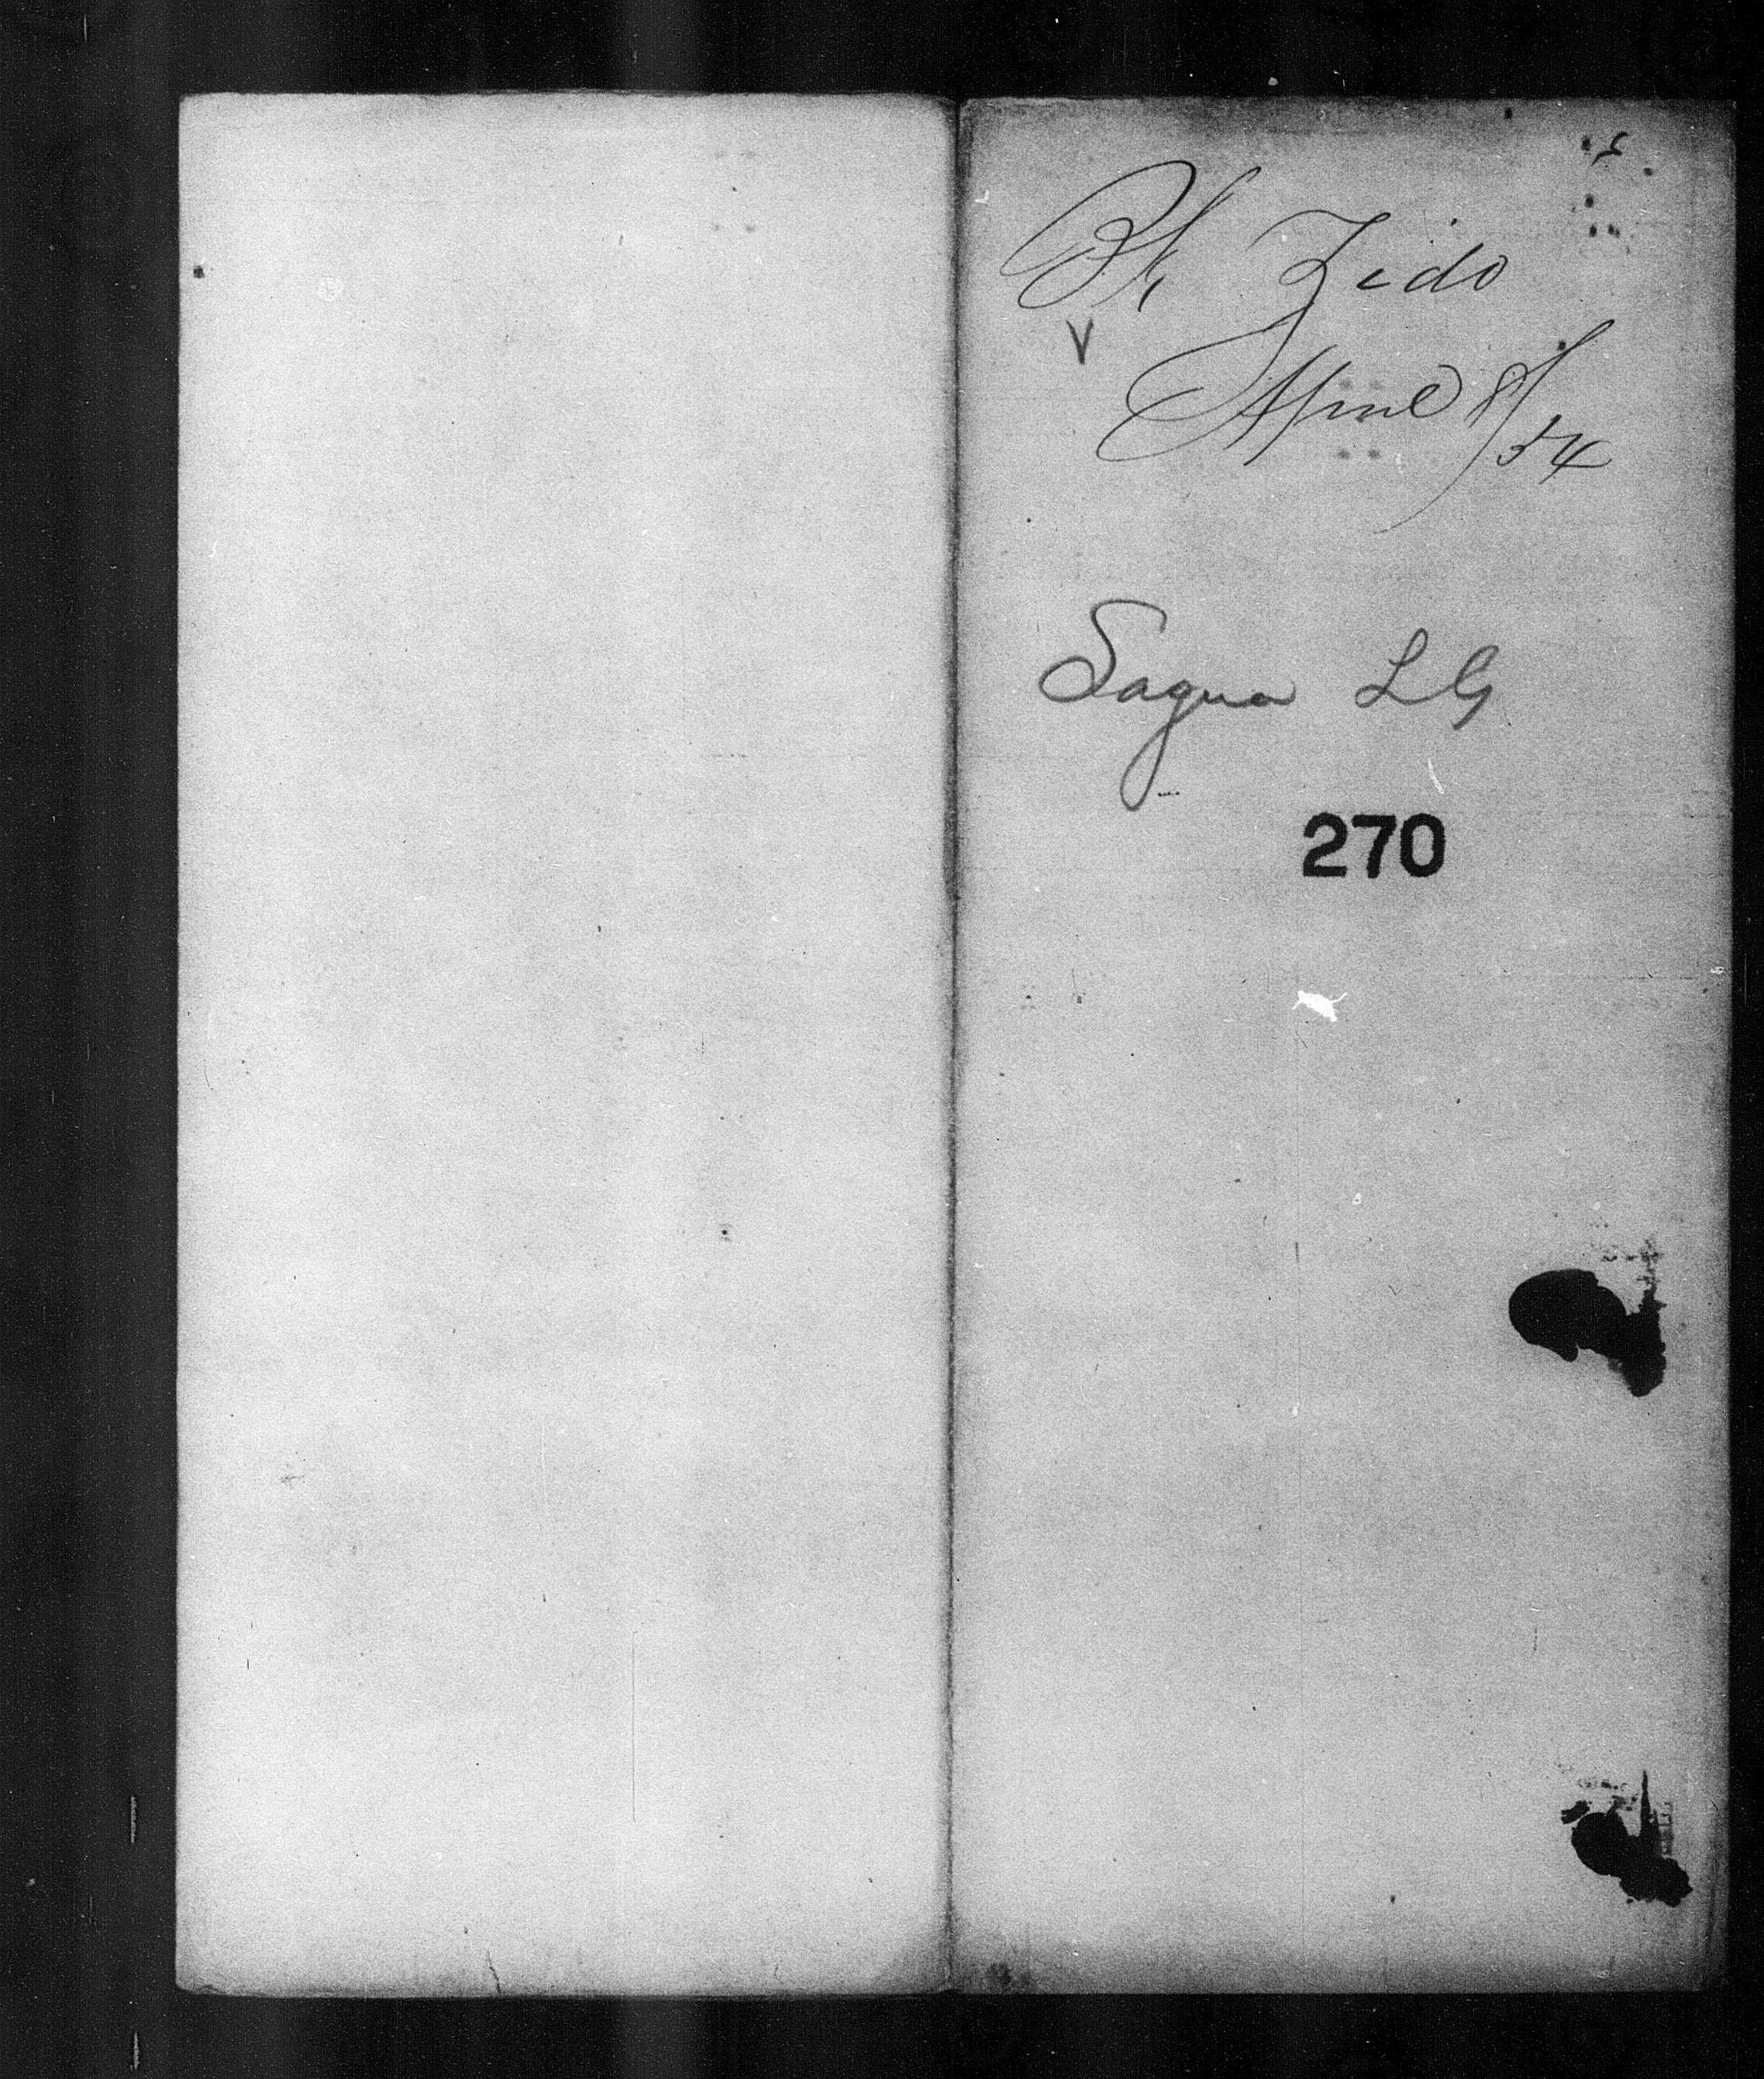 Bk Zido
April 8/54
Sagua LG
270